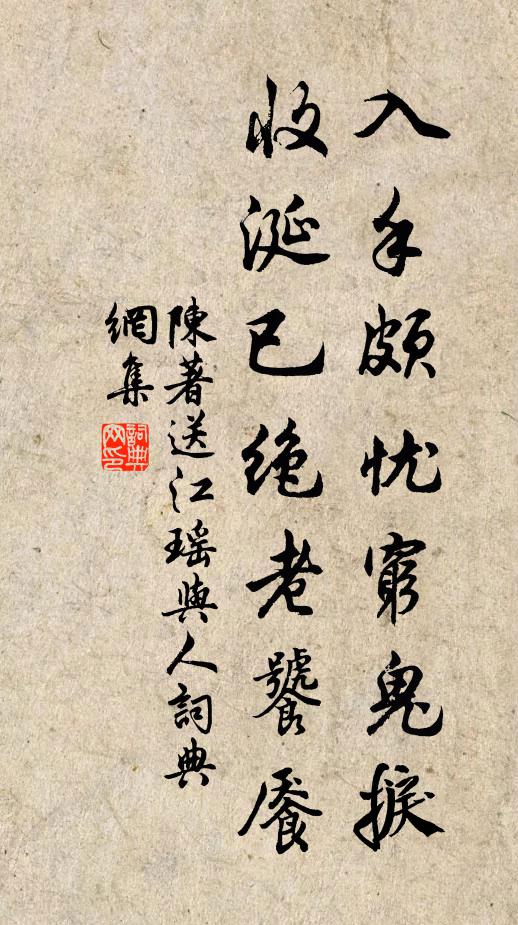 入手頗忧窮鬼捩
收涎已绝老饕餍
陳著送江瑶與人詞典
網集
詞典网印